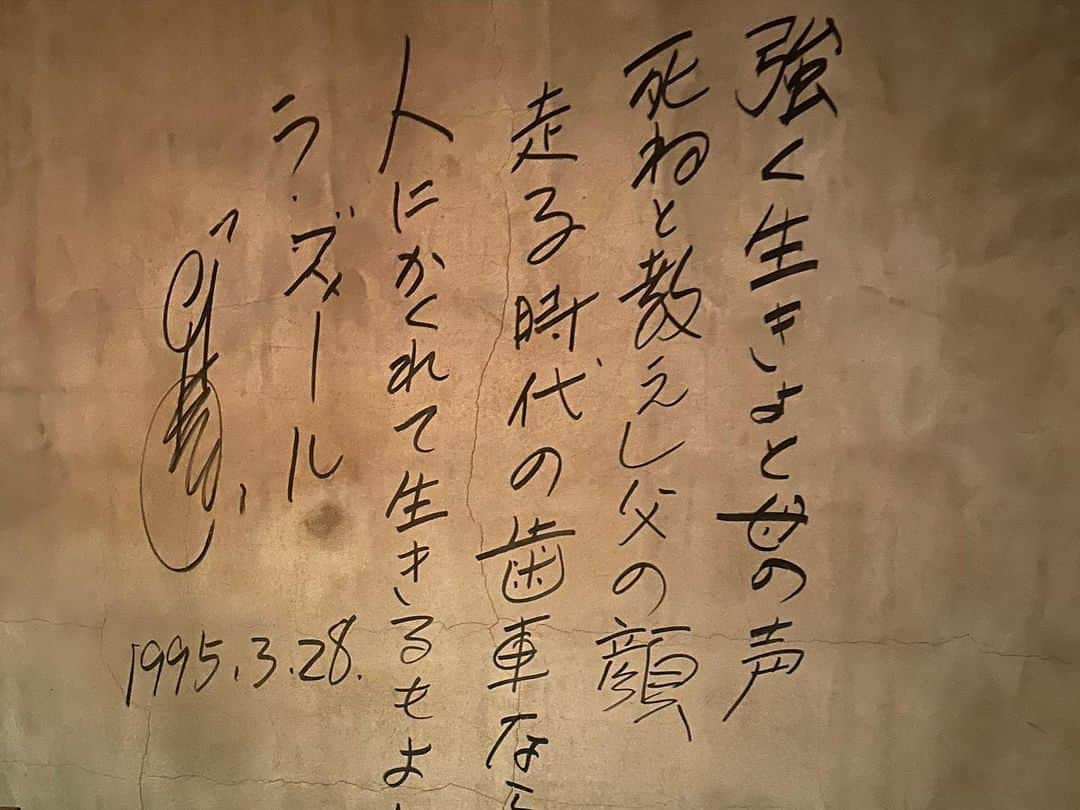 強く生きよと母の声
死ねと教えし父の顔
走る時代の歯車なら
人にかくれて生きるもよし
ラ・ズール
1995.3.28.